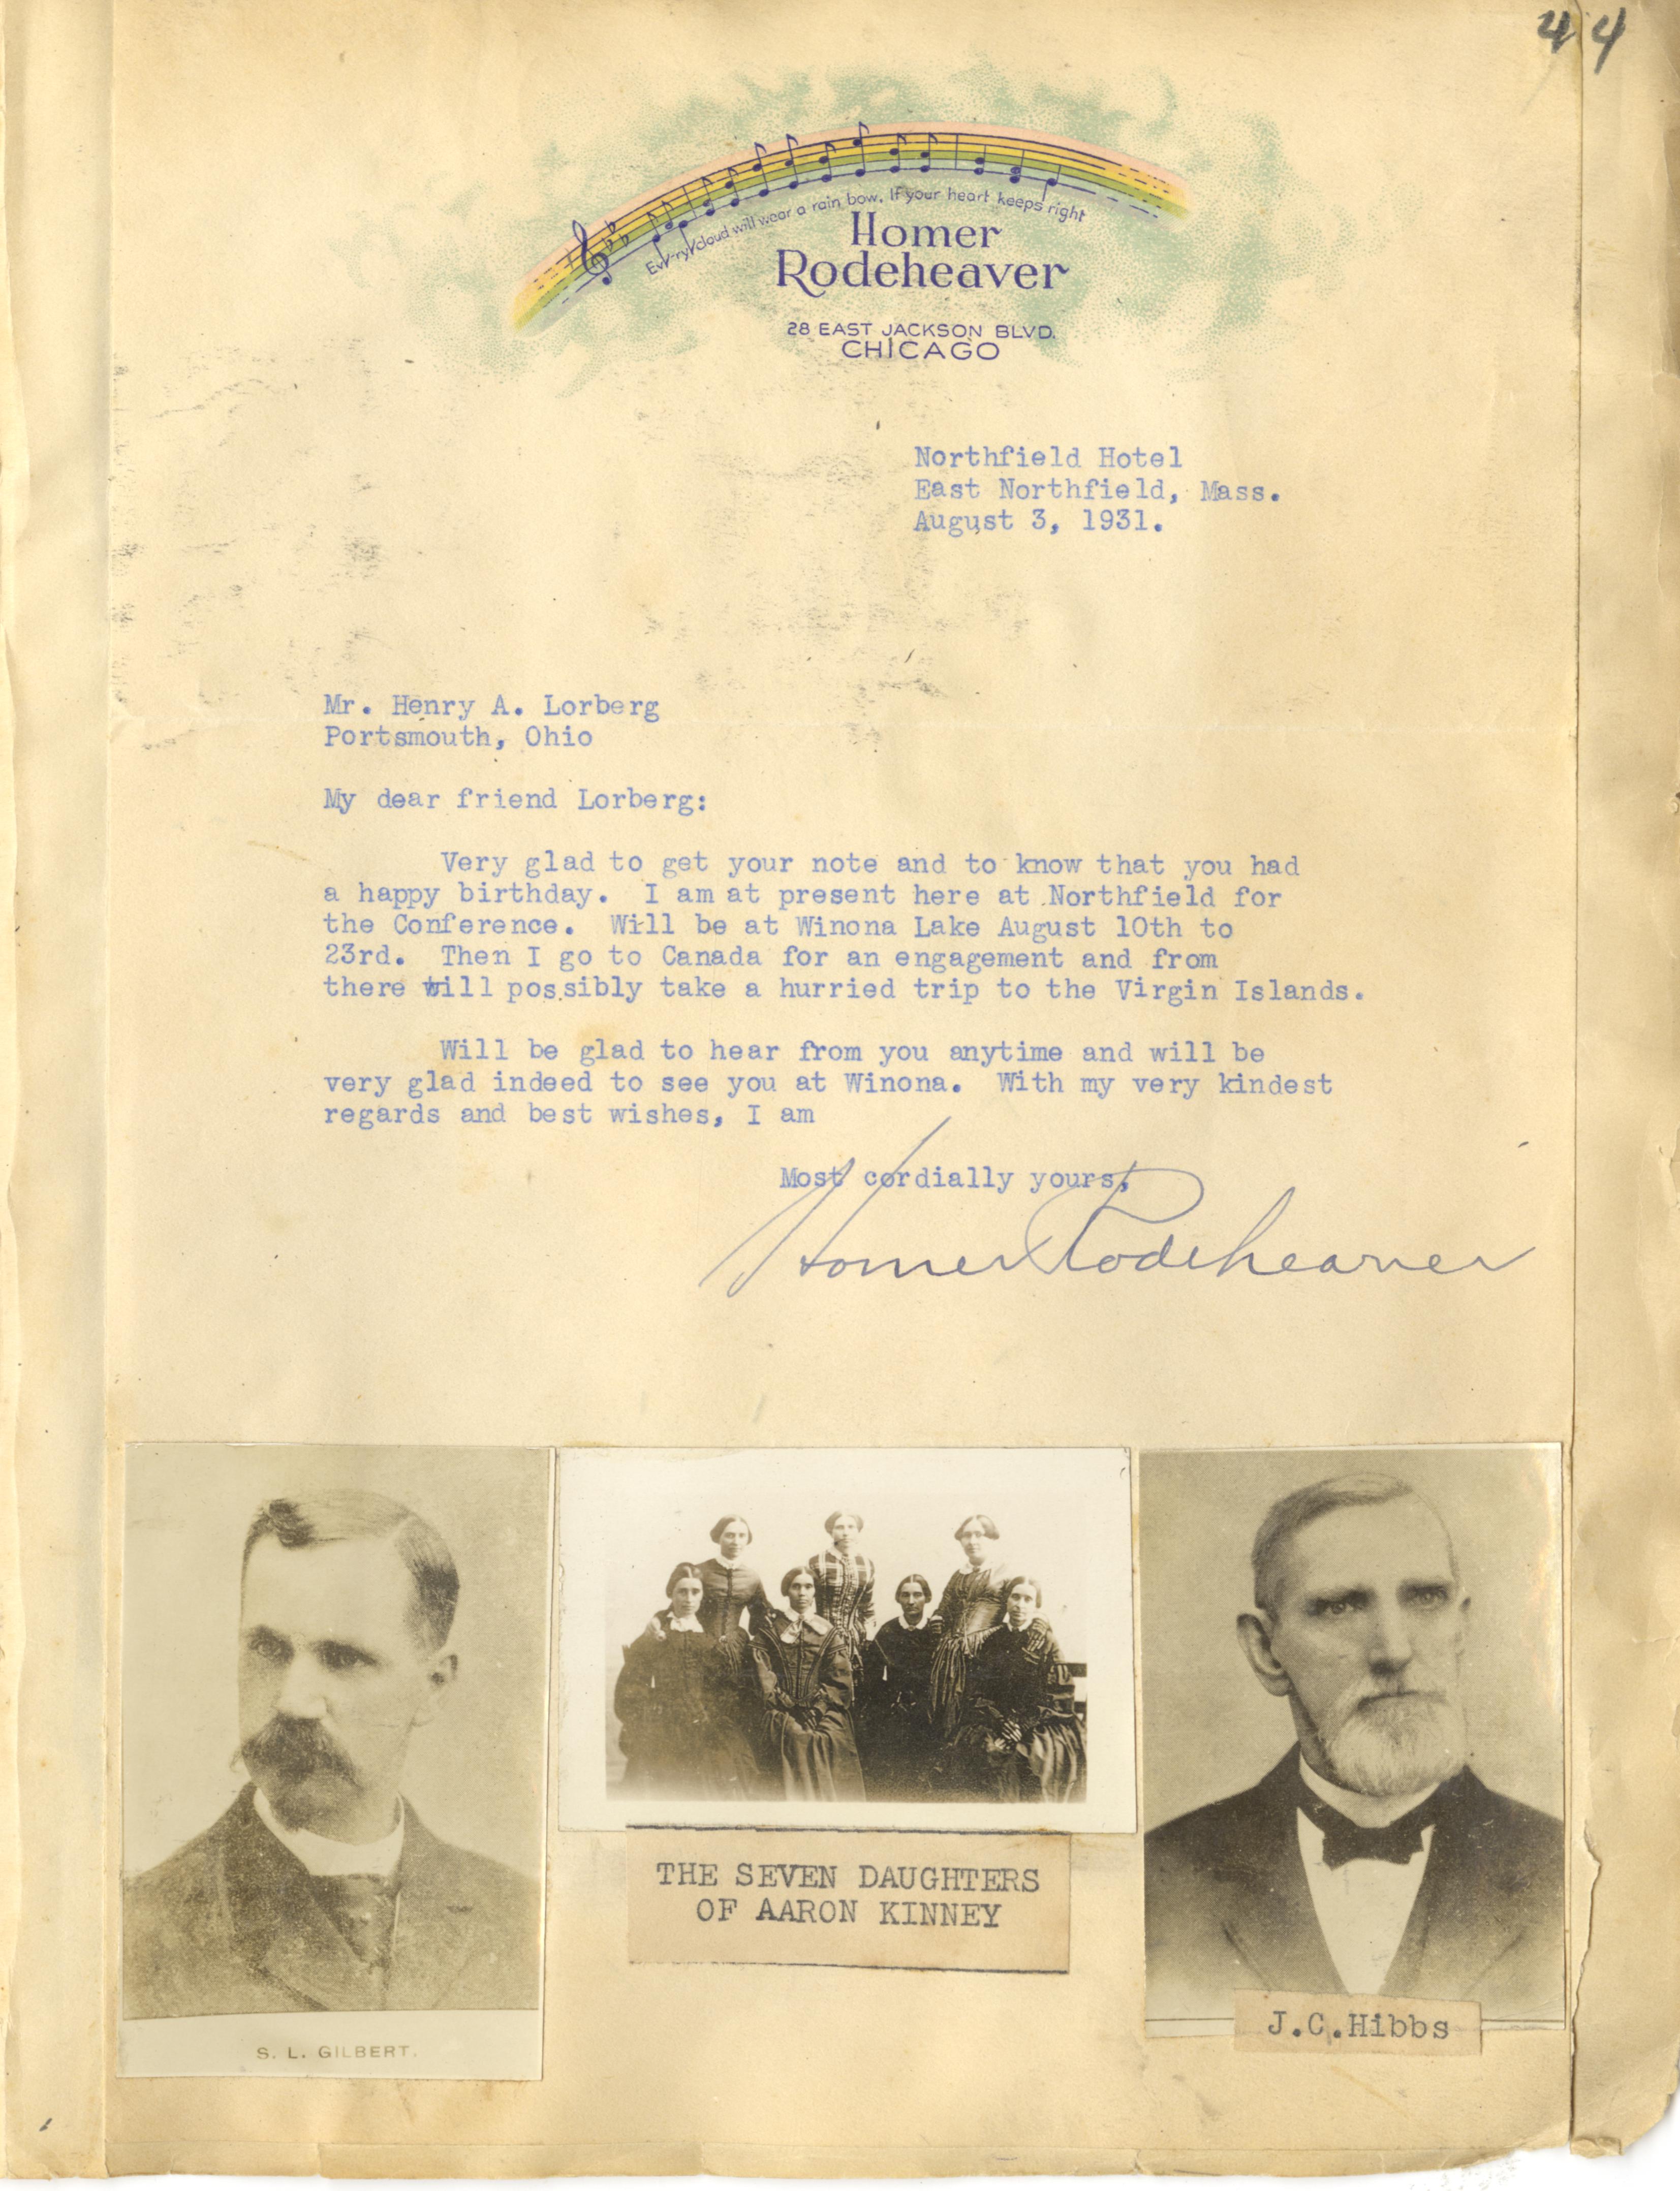 44
Ev'ry cloud will wear a rain bow, If your heart keeps right
Homer
Rodeheaver
28 EAST JACKSON BLVD.
CHICAGO
Northfield Hotel
East Northfield, Mass.
August 3, 1931.
Mr. Henry A. Lorberg
Portsmouth, Ohio
My dear friend Lorberg:
Very glad to get your note and to know that you had
a happy birthday. I am at present here at Northfield for
the Conference. Will be at Winona Lake August 10th to
23rd. Then I go to Canada for an engagement and from
there will possibly take a hurried trip to the Virgin Islands.
Will be glad to hear from you anytime and will be
very glad indeed to see you at Winona. With my very kindest
regards and best wishes, I am
Most cordially yours,
Homer Rodeheaver
THE SEVEN DAUGHTERS
OF AARON KINNEY
J.C.Hibbs
S. L. GILBERT.